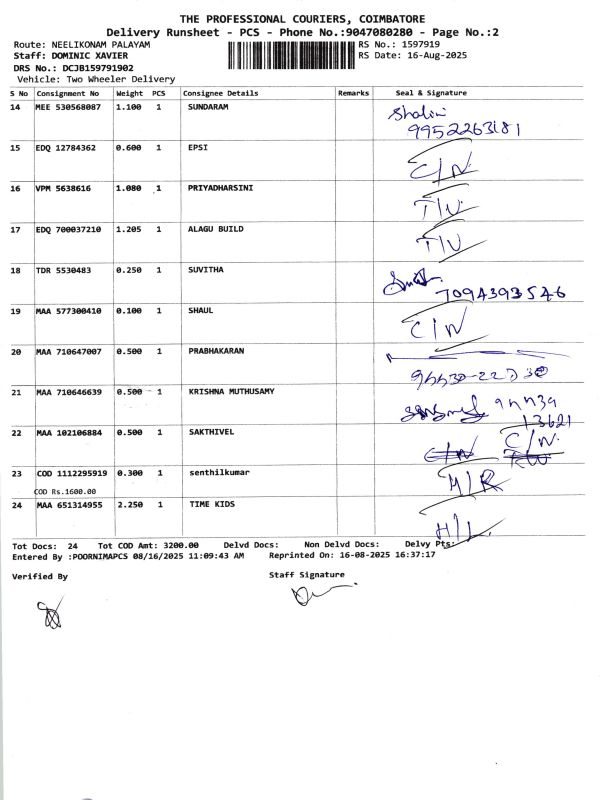 THE PROFESSIONAL COURIERS, COIMBATORE
Delivery Runsheet - PCS - Phone No.:9047080280 - Page No.:2
Route: NEELIKONAM PALAYAM RS No.: 1597919
Staff: DOMINIC XAVIER RS Date: 16-Aug-2025
DRS No.: DCJB159791902
Vehicle: Two Wheeler Delivery
S No Consignment No Weight PCS Consignee Details Remarks Seal & Signature
14 MEE 530568087 1.100 1 SUNDARAM Shalini
9952263181
15 EDQ 12784362 0.600 1 EPSI C/N
16 VPM 5638616 1.080 1 PRIYADHARSINI T/V
17 EDQ 700037210 1.205 1 ALAGU BUILD T/V
18 TDR 5530483 0.250 1 SUVITHA
7094393546
19 MAA 577300410 0.100 1 SHAUL C/N
20 MAA 710647007 0.500 1 PRABHAKARAN
21 MAA 710646639 0.500 1 KRISHNA MUTHUSAMY
13621
22 MAA 102106884 0.500 1 SAKTHIVEL C/N
23 COD 1112295919 0.300 1 senthilkumar M/R
COD Rs.1600.00
24 MAA 651314955 2.250 1 TIME KIDS H/L
Tot Docs: 24 Tot COD Amt: 3200.00 Delvd Docs: Non Delvd Docs: Delvy Pts:
Entered By :POORNIMAPCS 08/16/2025 11:09:43 AM Reprinted On: 16-08-2025 16:37:17
Verified By Staff Signature